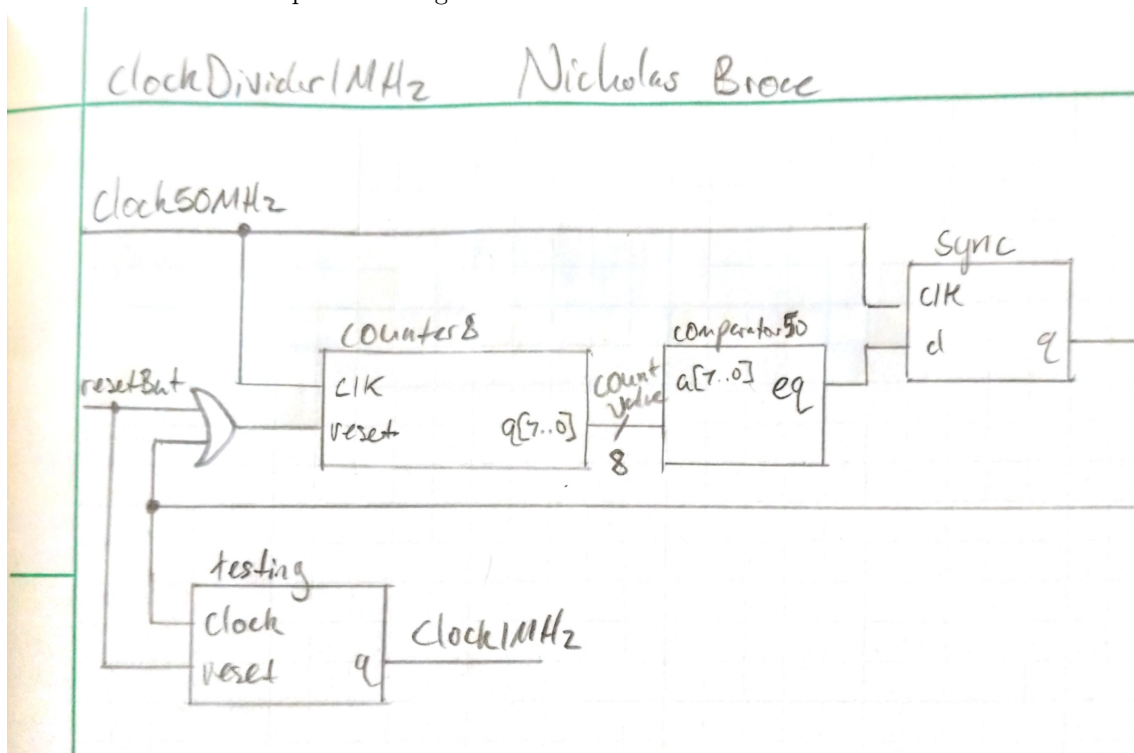 clockDivider1MHz Nicholas Broce
Clock50MHz
Sync
clk
d q
counter8
clk
reset q[7..0]
count
value
8
comparator50
a[7..0] eq
resetBut
testing
clock
reset q
Clock1MHz